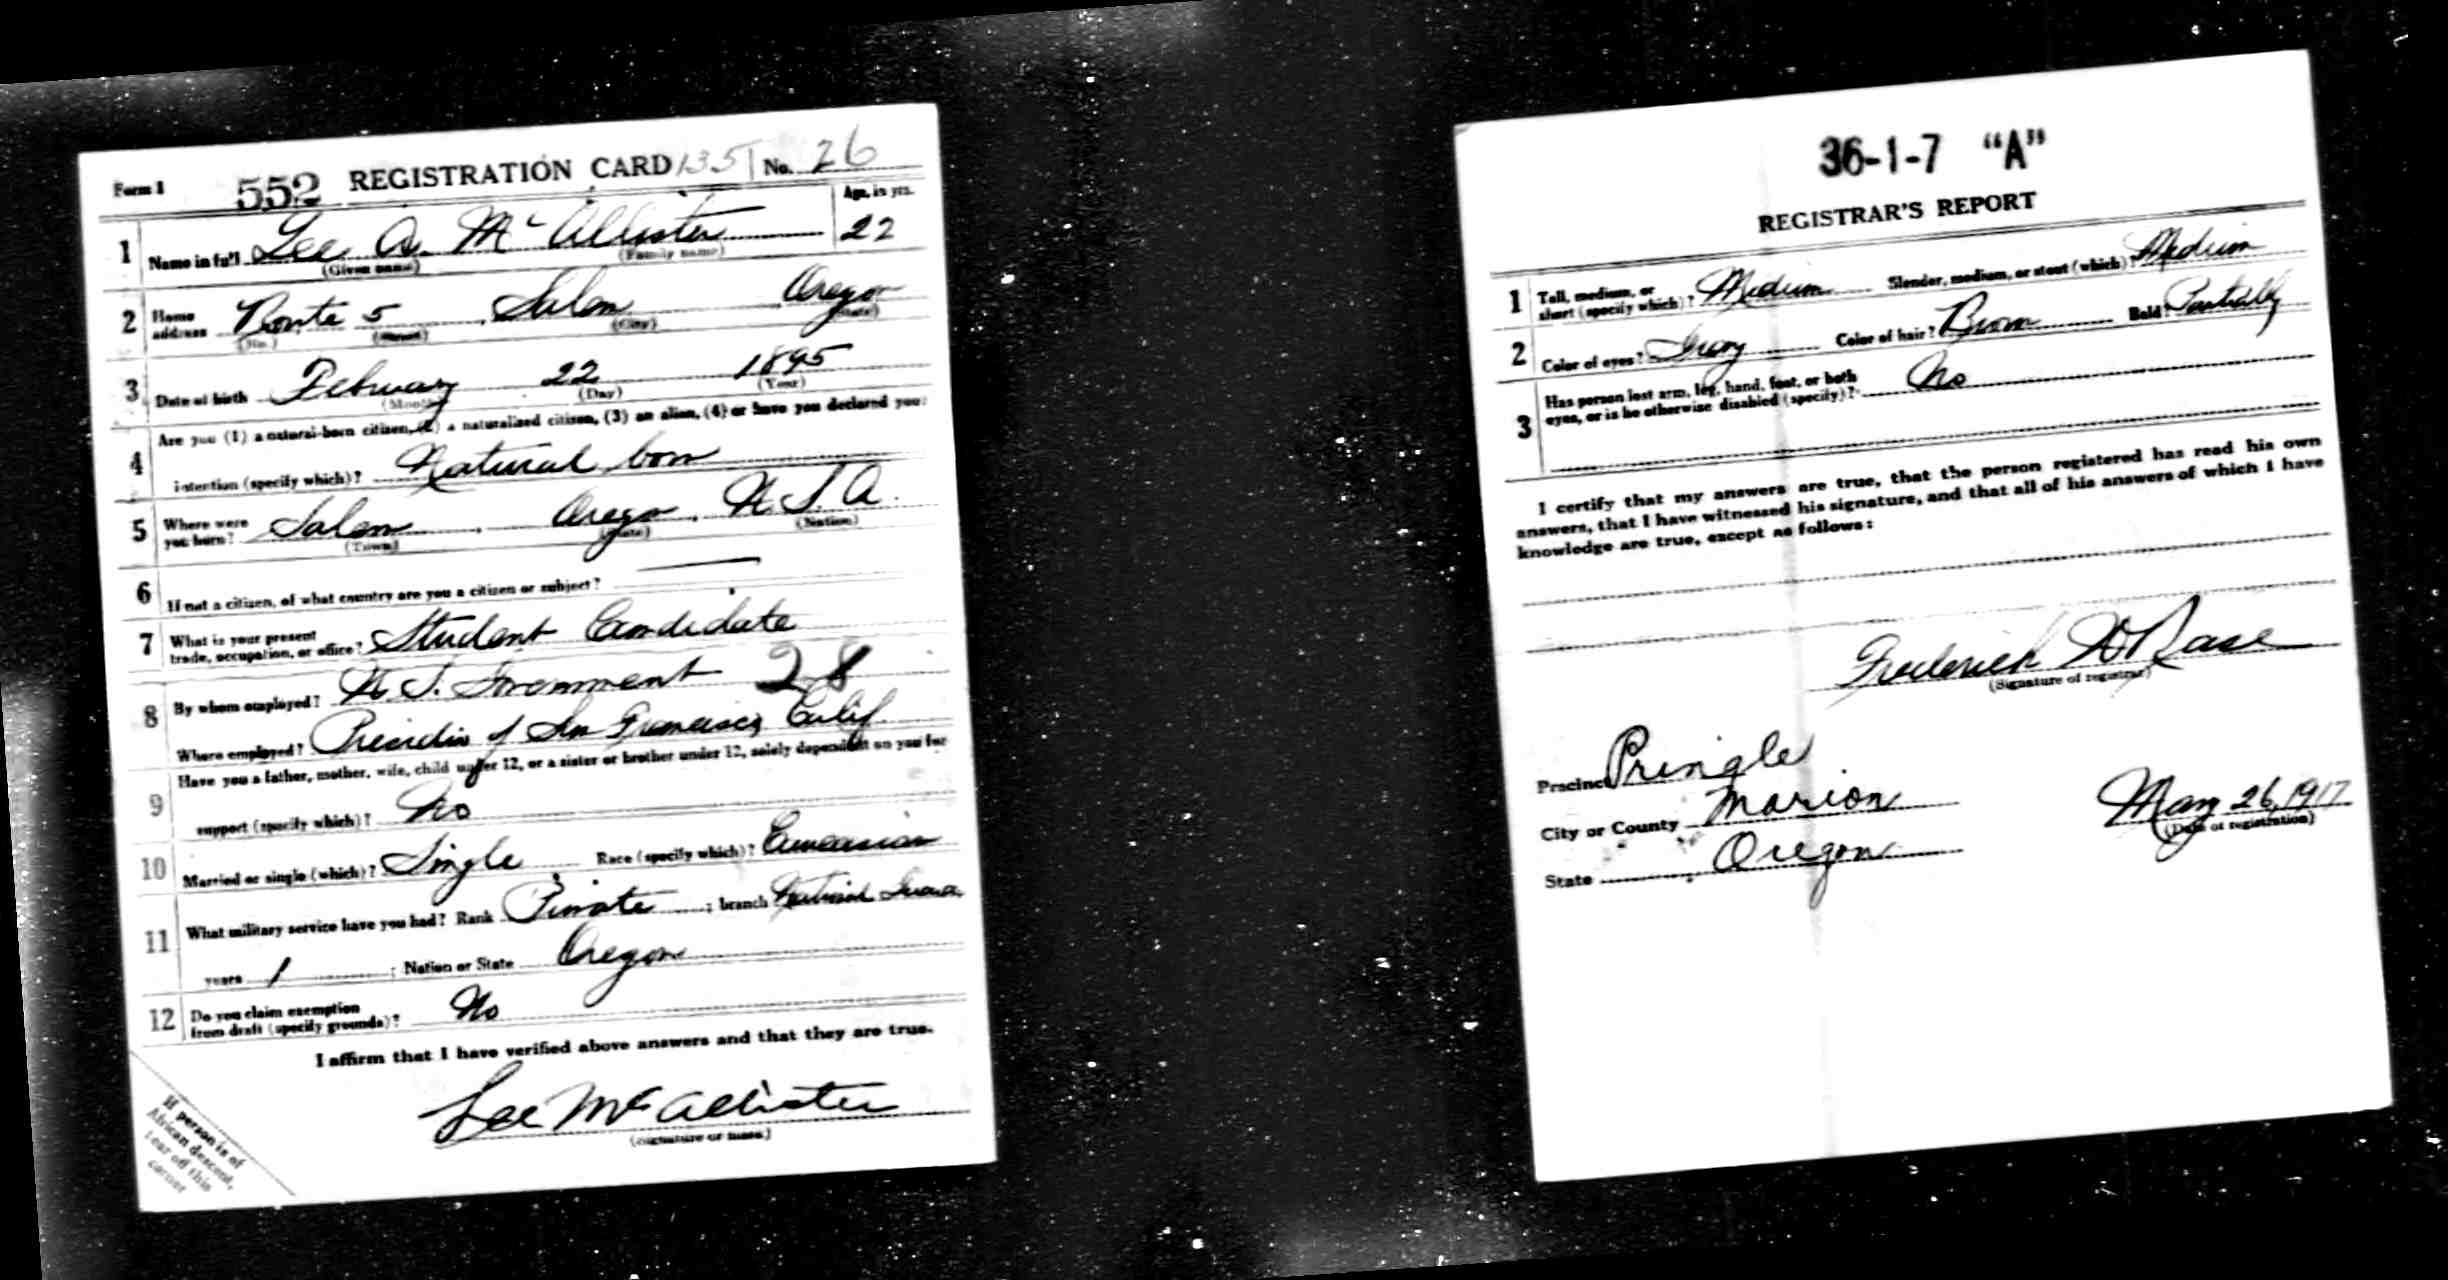 Form 1 552 REGISTRATION CARD 135 No. 26
Age, in yrs.
1 Name in full Lee A. McAllister 22
(Given name) (Family name)
2 Home address Route 5 Salem Oregon
(No.) (Street) (City) (State)
3 Date of birth February 22 1895
(Month) (Day) (Year)
4 Are you (1) a natural-born citizen, (2) a naturalized citizen, (3) an alien, (4) or have you declared your
intention (specify which)? Natural born
5 Where were you born? Salem, Oregon, U.S.A.
(Town) (State) (Nation)
6 If not a citizen, of what country are you a citizen or subject? —
7 What is your present trade, occupation, or office? Student Candidate
8 By whom employed? U.S. Government 28
Where employed? Presidio of San Francisco, Calif
9 Have you a father, mother, wife, child under 12, or a sister or brother under 12, solely dependent on you for
support (specify which)? No
10 Married or single (which)? Single Race (specify which)? Caucasian
11 What military service have you had? Rank Private ; branch National Guard
years 1 ; Nation or State Oregon
12 Do you claim exemption from draft (specify grounds)? No
I affirm that I have verified above answers and that they are true.
Lee McAllister
(Signature or mark)
If person is of
African descent,
tear off this
corner
36-1-7 "A"
REGISTRAR'S REPORT
1 Tall, medium, or short (specify which)? Medium Slender, medium, or stout (which)? Medium
2 Color of eyes? Gray Color of hair? Brown Bald? Partially
3 Has person lost arm, leg, hand, foot, or both
eyes, or is he otherwise disabled (specify)? No
I certify that my answers are true, that the person registered has read his own
answers, that I have witnessed his signature, and that all of his answers of which I have
knowledge are true, except as follows:
Frederick W Rase
(Signature of registrar)
Precinct Pringle
City or County Marion
State Oregon
May 26, 1917
(Date of registration)